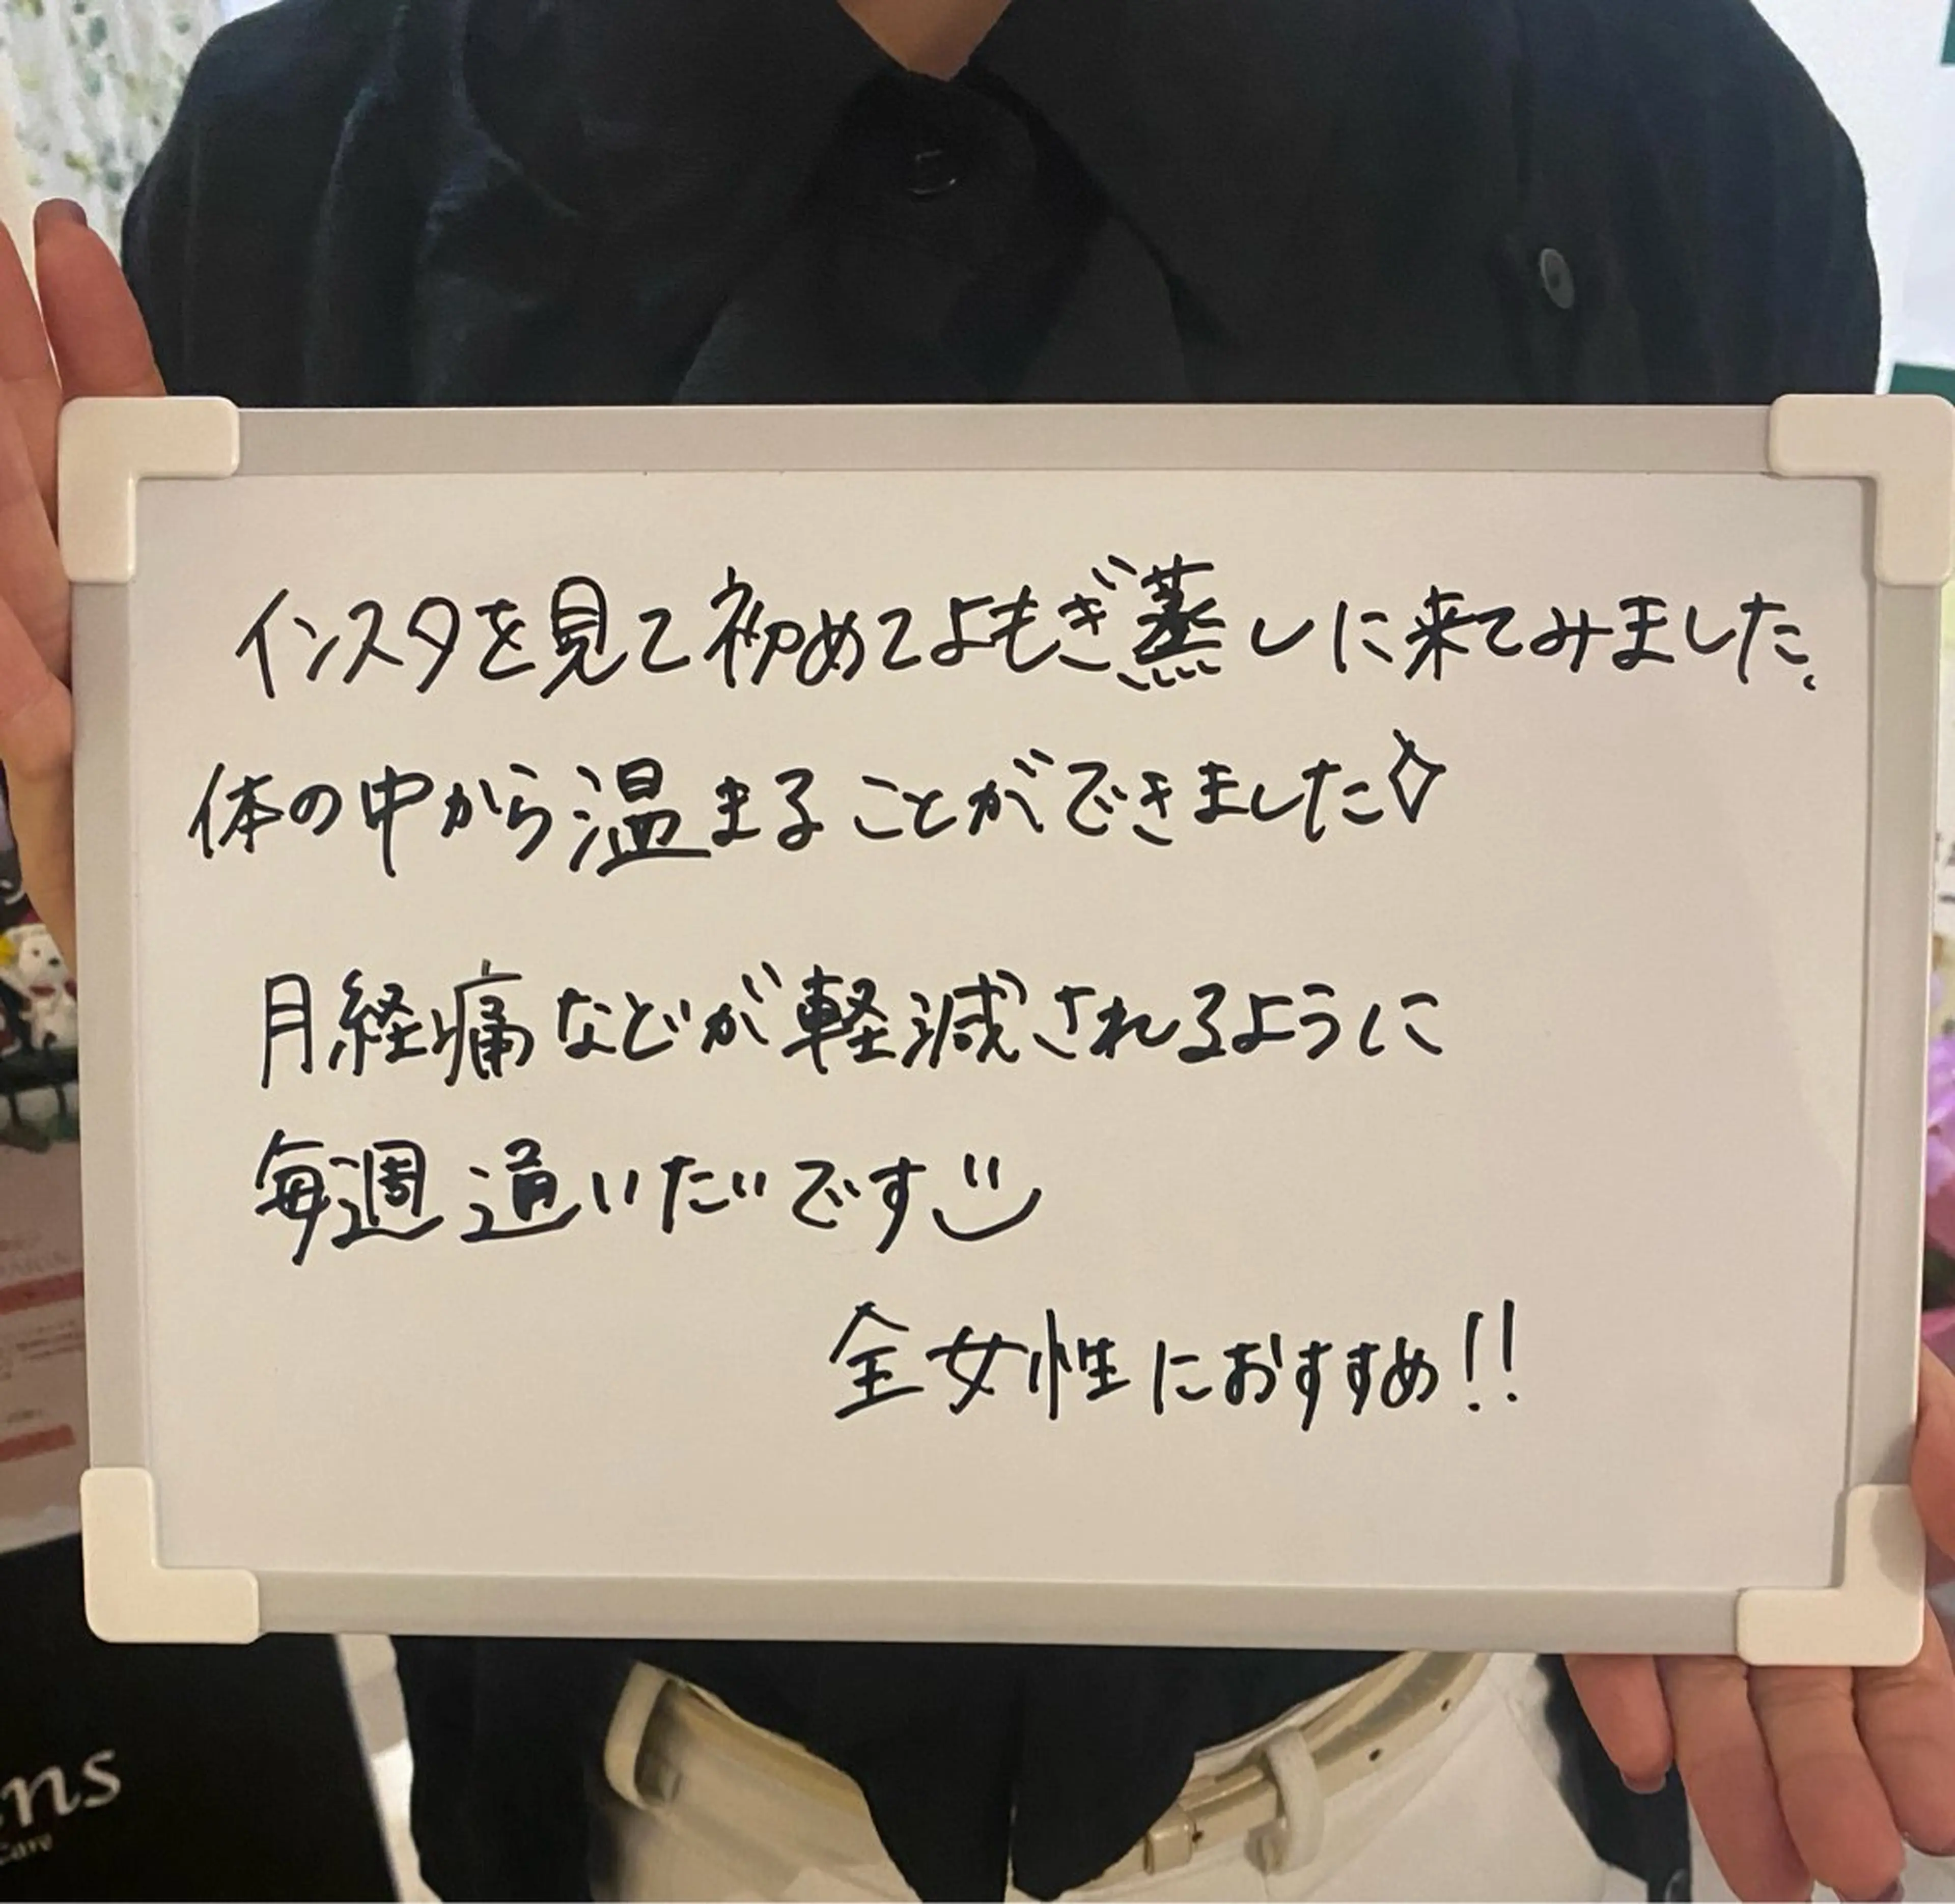 インスタを見て初めてよもぎ蒸しに来てみました。
体の中から温まることができました◇
月経痛などが軽減されるように
毎週通いたいです
全女性におすすめ!!
ns
Care